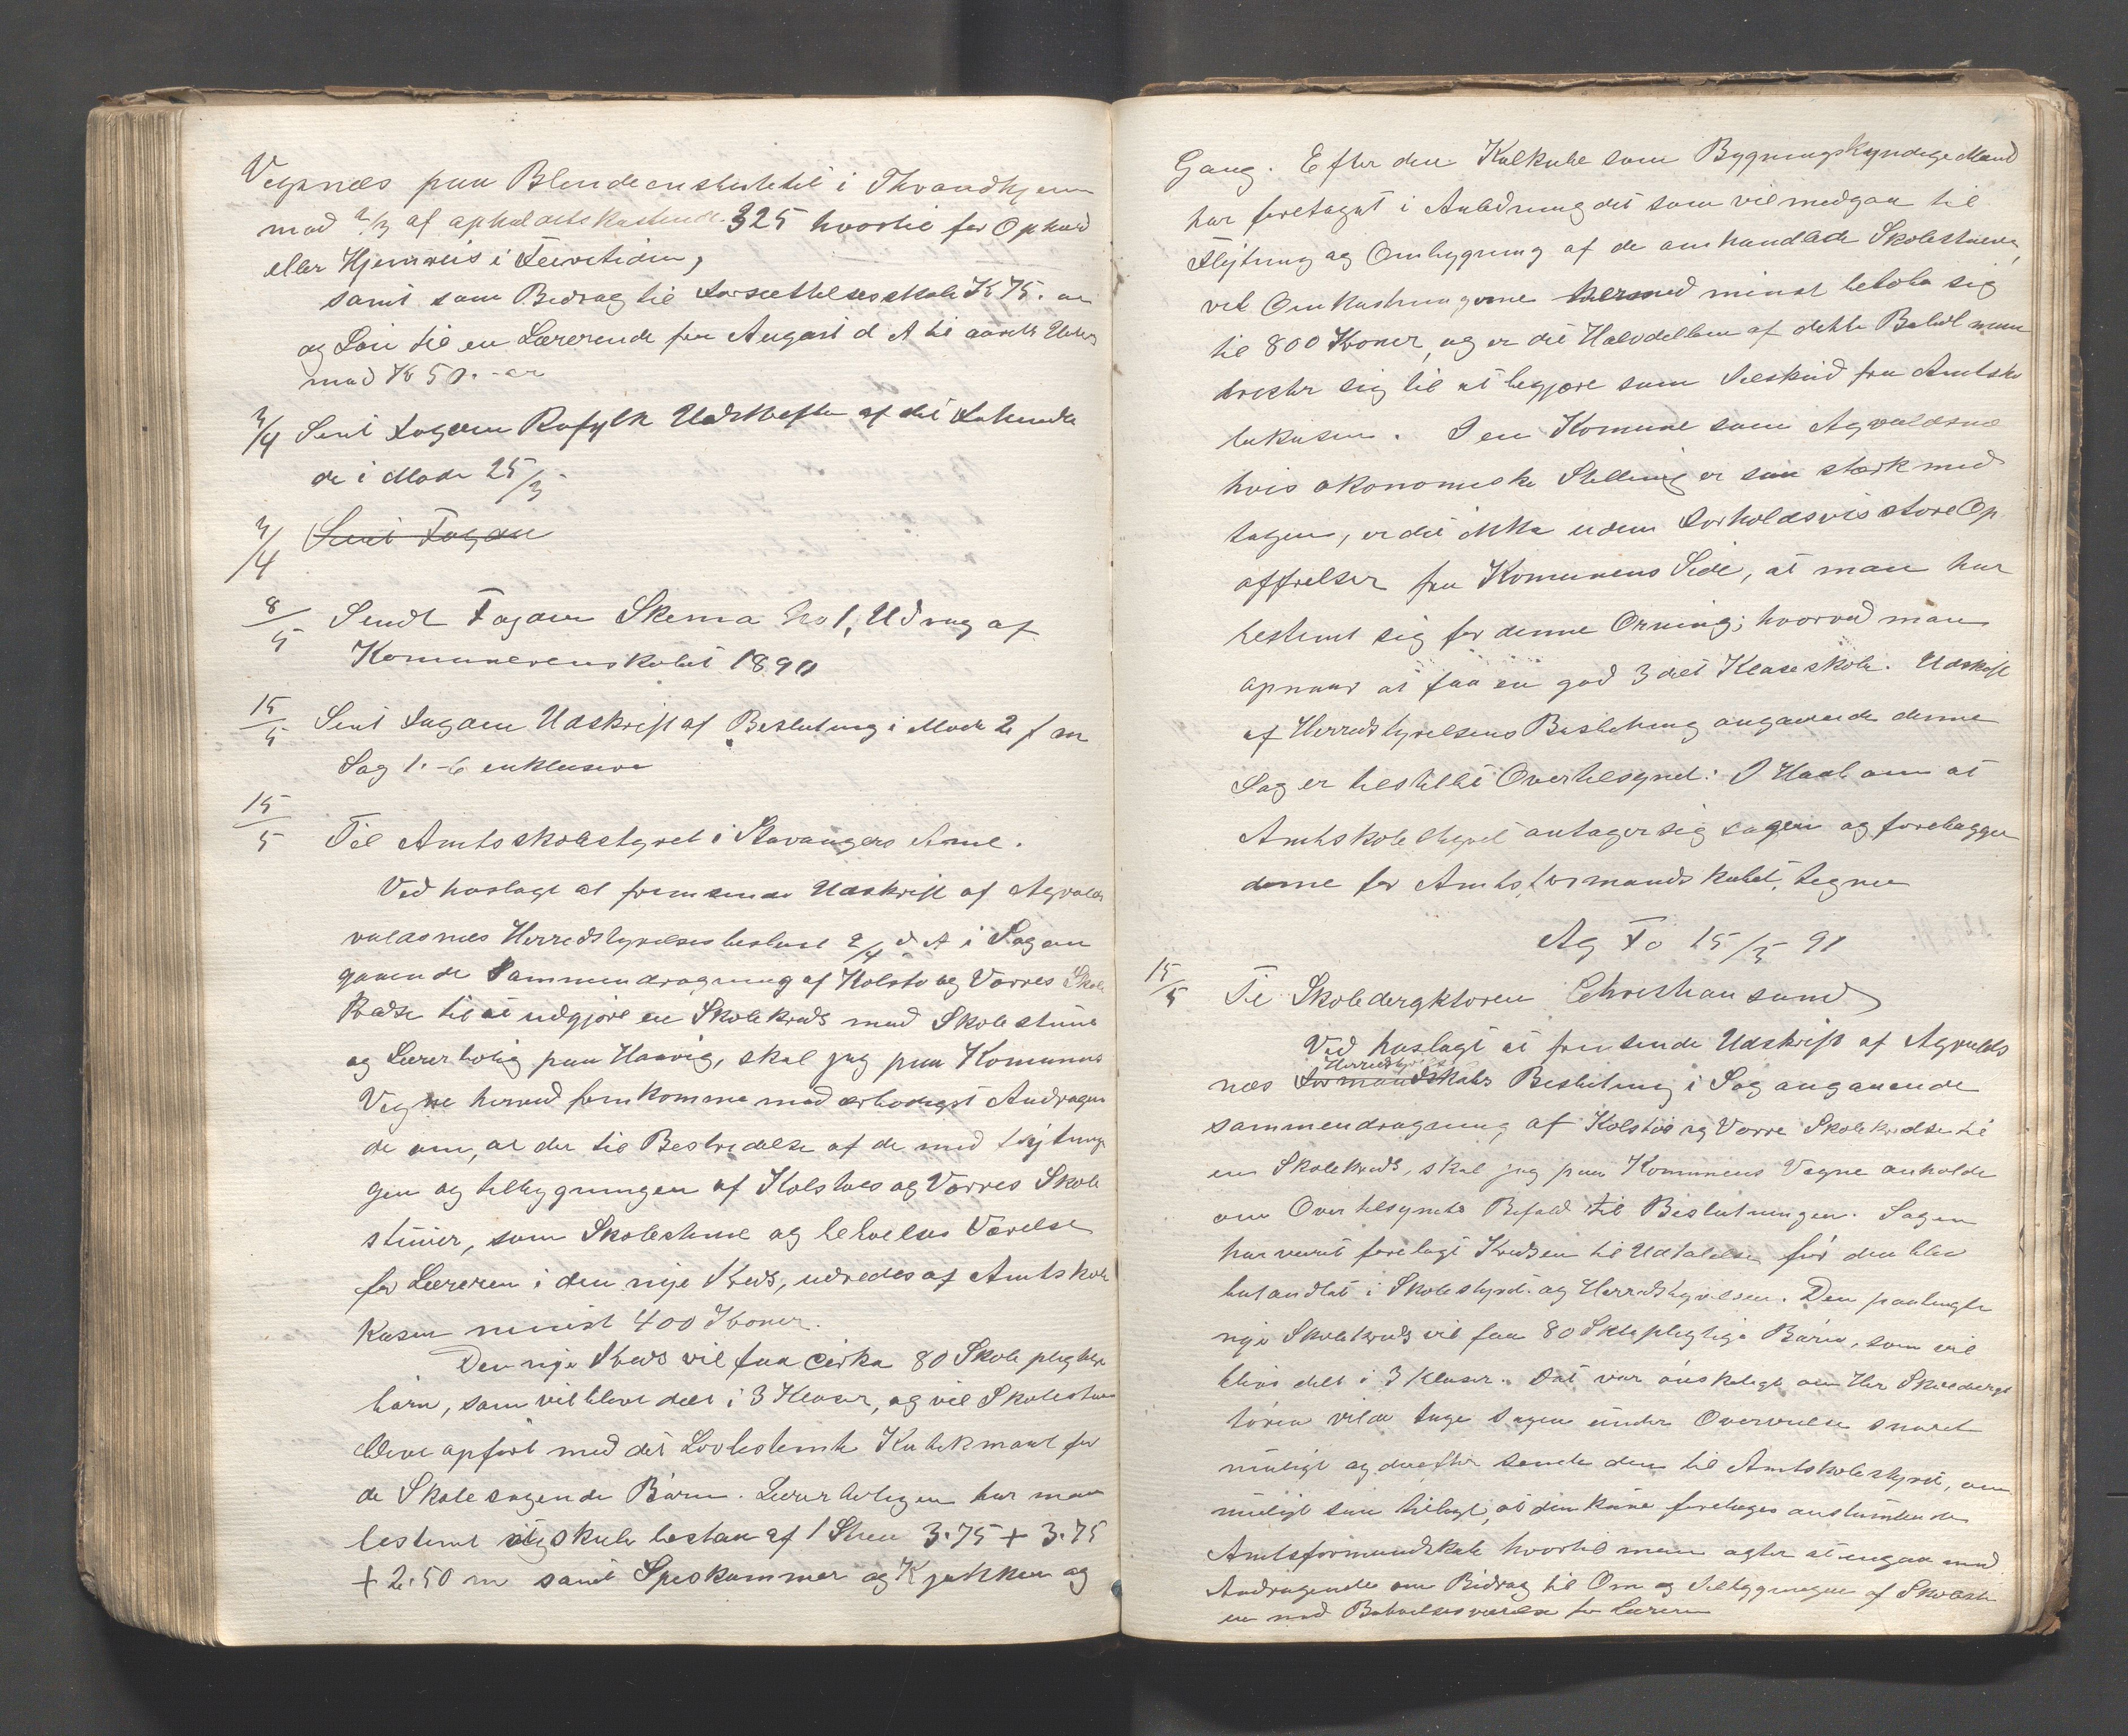 Vegnæs paa Blindeanstaltet i Throndhjem
mod 2/3 af opholdets kostende 325 hvortil for Ophold
eller Hjemreis i Feiretiden,
samt som Bidrag til Forsættelsesskole Kr 75. -
og Løn til en Lærerinde fra August d A til aarets Udløb
mod Kr 50. -
3/4 Sent Fogden Rofylk Udskrifter af det Forhandle
de i Møde 25/3
3/4 Sent Fogden
8/5 Sendt Fogden Skema No 1, Udrag af
Komuneregnskabet 1890
15/5 Sent Fogden Udskrift af Beslutning i Møde 2 f m
Sag 1.-6 enklusive
15/5 Til Amtsskolestyret i Stavangers Amt.
Ved hoslagt at fremsende Udskrift af Agvalds
valdsnes Herredstyrelses beslut 2/4 d A i Sag an
gaaende Sammendragning af Kolstø og Vorres Skole
Kredse til at udgjøre en Skolekreds med Skolestue
og Lærerbolig paa Haavig, skal jeg paa Komunens
Vegne herved fremkomme med ærbødigst Andragen
de om, at der til Bestridelse af de med Fløjtnings
gen og tilbygningen af Kolstøes og Vorres Skole
stuer, som Skolestue og beboelses Værelse
for Læreren i den nye Kreds, udredes af Amtskole
kasen minst 400 Kroner.
Den nye Kreds vil faa cirka 80 Skolepligtige
børn, som vil blive delt i 3 Klaser, og vil Skolestuen
blive opført med det Lovbestemte Kubikmaal for
de Skolesøgende Børn. Lærerboligen har man
bestemt at skule bestaa af 1 Stue 3.75 + 3.75
+ 2.50 m samt Spiskammer og Kjøkken og
Gang. Efter den Kalkule som Bygningskyndige Mænd
har foretaget i Anledning det som vil medgaa til
Fløjtning og Ombygning af de omhandlede Skolestuer,
vil Omkostningerne hermed minst beløbe sig
til 800 Kroner, og er det Halvdelen af dette Beløb man
drister sig til at begjære som Tilskud fra Amtsko
lekasen. I en Komune som Agvaldsnes
hvis økonomiske Stelling er saa stærk med
tagen, er det ikke uden Forholdsvis store Op
offrelser fra Komunens Side, at man har
bestemt sig for denne Orning; hvorved man
opnaar at faa en god 3 delt Klaseskole. Udskrift
af Herredstyrelsens Beslutning angaaende denne
Sag er tilstillet Overtilsynet. I Haab om at
Amtskolestyret antager sig sagen og forelægger
denne for Amtsformandskabet, tegner
Ag Fo 15/5 91
15/5 Til Skoledirektøren Christiansand
Ved hoslagt at fremsende Udskrift af Agvalds
Herredsty
næs Formandskabs Beslutning i Sag angaaende
sammendragning af Kolstøe og Vorre Skolekredse til
en Skolekreds, skal jeg paa Kommunens Vegne anholde
om Overtilsynets Bifald til Beslutningen. Sagen
har været forelagt Kredsen til Udtalelse før den blev
behandlet i Skolestyret og Herredstyrelsen. Den paatænkte
nye Skolekreds vil faa 80 Skolepligtige Børn, som vil
blive delt i 3 Klaser. Det var ønskeligt om Her Skoledirek
tøren vilde tage sagen under Overveielse snarest
muligt og derefter sende den til Amtskolestyret, om
muligt saa betids, at den kune forelægges anstundende
Amtsformandskab hvortil man agter at indgaa med
Andragende om Bidrag til Om og Tilbygningen af Skolestu
en med Beboelsesværelse for Læreren